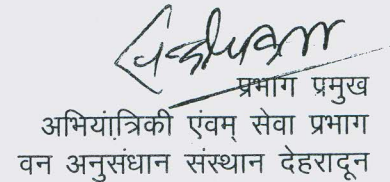 प्रभाग प्रमुख
अभियांत्रिकी एंवम् सेवा प्रभाग
वन अनुसंधान संस्थान देहरादून